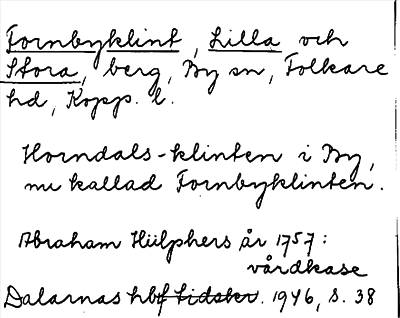 Fornbyklint, Lilla och
Stora, berg, By sn, Folkare
hd, Kopp. l.
Horndals-klinten i By,
nu kallad Fornbyklinten.
Abraham Hülphers år 1757:
vårdkase
Dalarnas hbf tidskr. 1946, s. 38